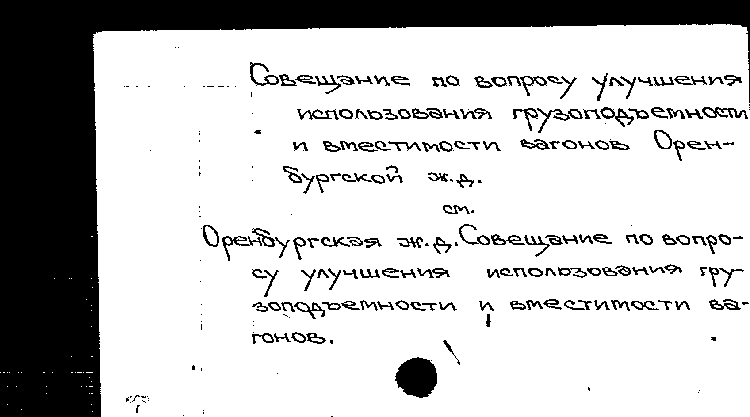 Совещание по вопросу улучшения
использования грузоподъемности
и вместимости вагонов Орен-
бургской ж.д.
см.
Оренбургская ж.д. Совещание по вопро-
су улучшения использования гру-
зоподъемности и вместимости ва-
гонов.